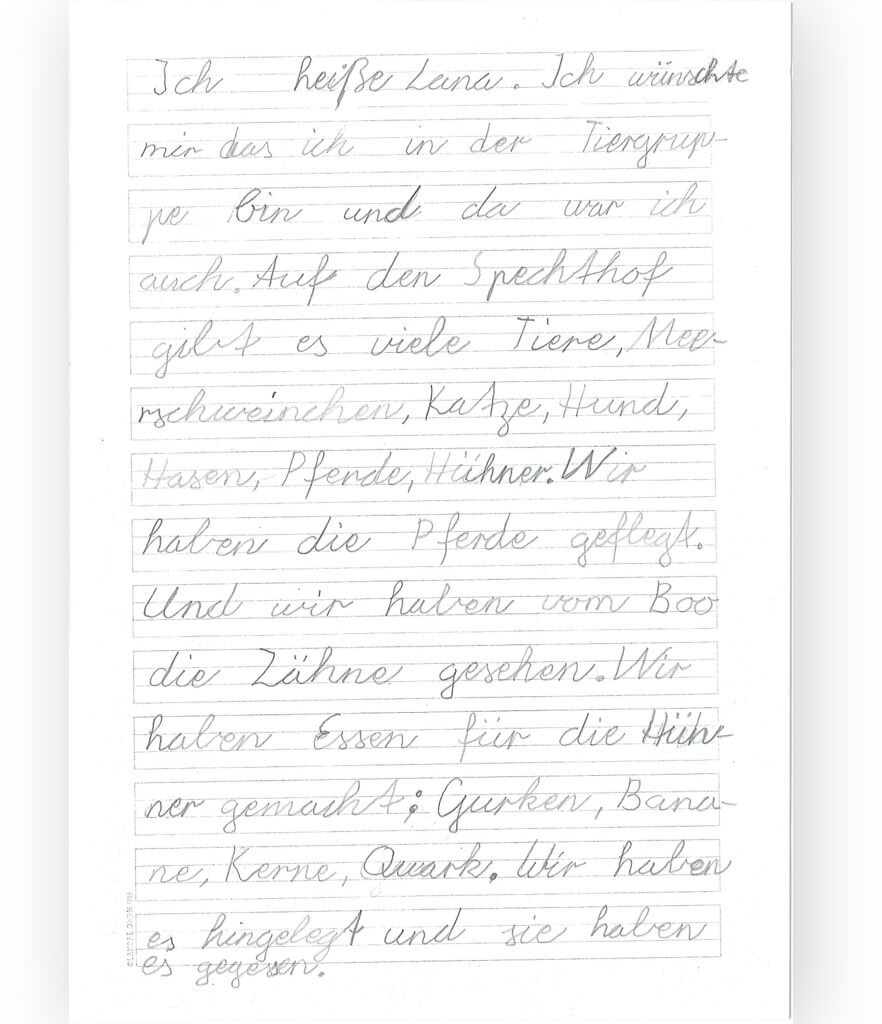 Ich heiße Lana. Ich wünschte
mir das ich in der Tiergrup-
pe bin und da war ich
auch. Auf den Spechthof
gibt es viele Tiere, Mee-
rschweinchen, Katze, Hund,
Hasen, Pferde, Hühner. Wir
haben die Pferde geflegt.
Und wir haben vom Boo
die Zähne gesehen. Wir
haben Essen für die Hüh-
ner gemacht; Gurken, Bana-
ne, Kerne, Quark. Wir haben
es hingelegt und sie haben
es gegessen.